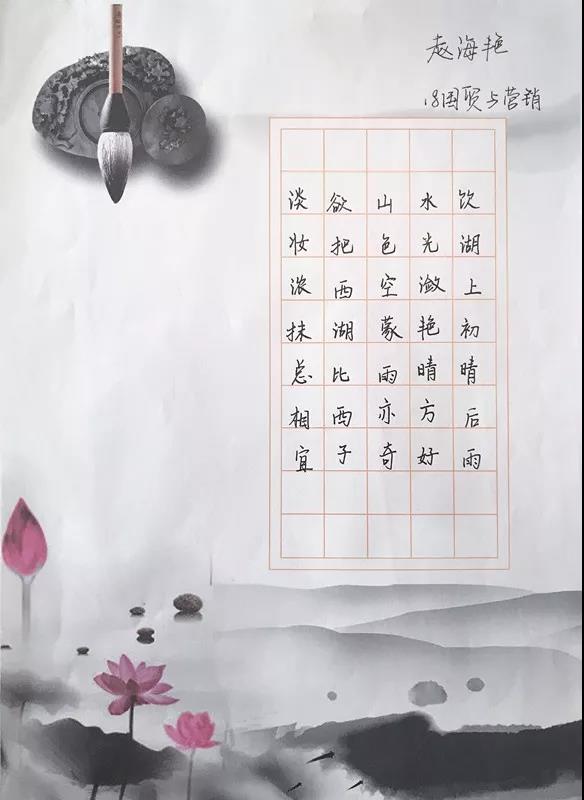 赵海艳
18国贸与营销
饮湖上初晴后雨
水光潋艳晴方好
山色空蒙雨亦奇
欲把西湖比西子
淡妆浓抹总相宜